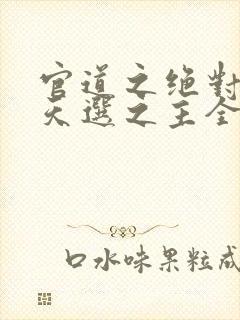 官道之绝對
天選之王全
口水味果粒成